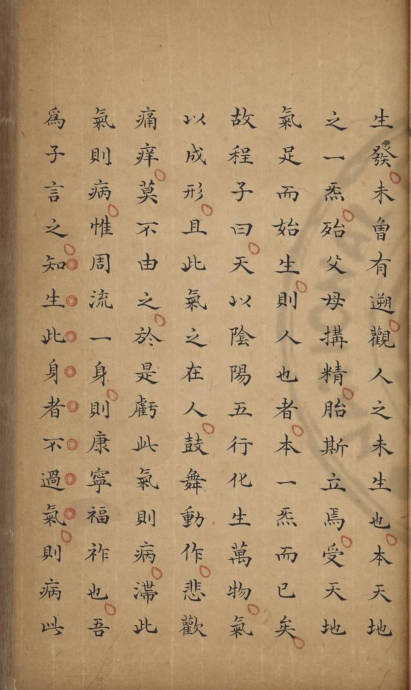 生發未曾有遡觀人之未生也本天地
之一炁殆父母搆精胎斯立焉受天地
氣足而始生則人也者本一炁而已矣
故程子曰天以陰陽五行化生萬物氣
以成形且此氣之在人鼓舞動作悲歡
痛痒莫不由之於是虧此氣則病滯此
氣則病惟周流一身則康寧福祚也吾
為子言之知生此身者不過氣則病此